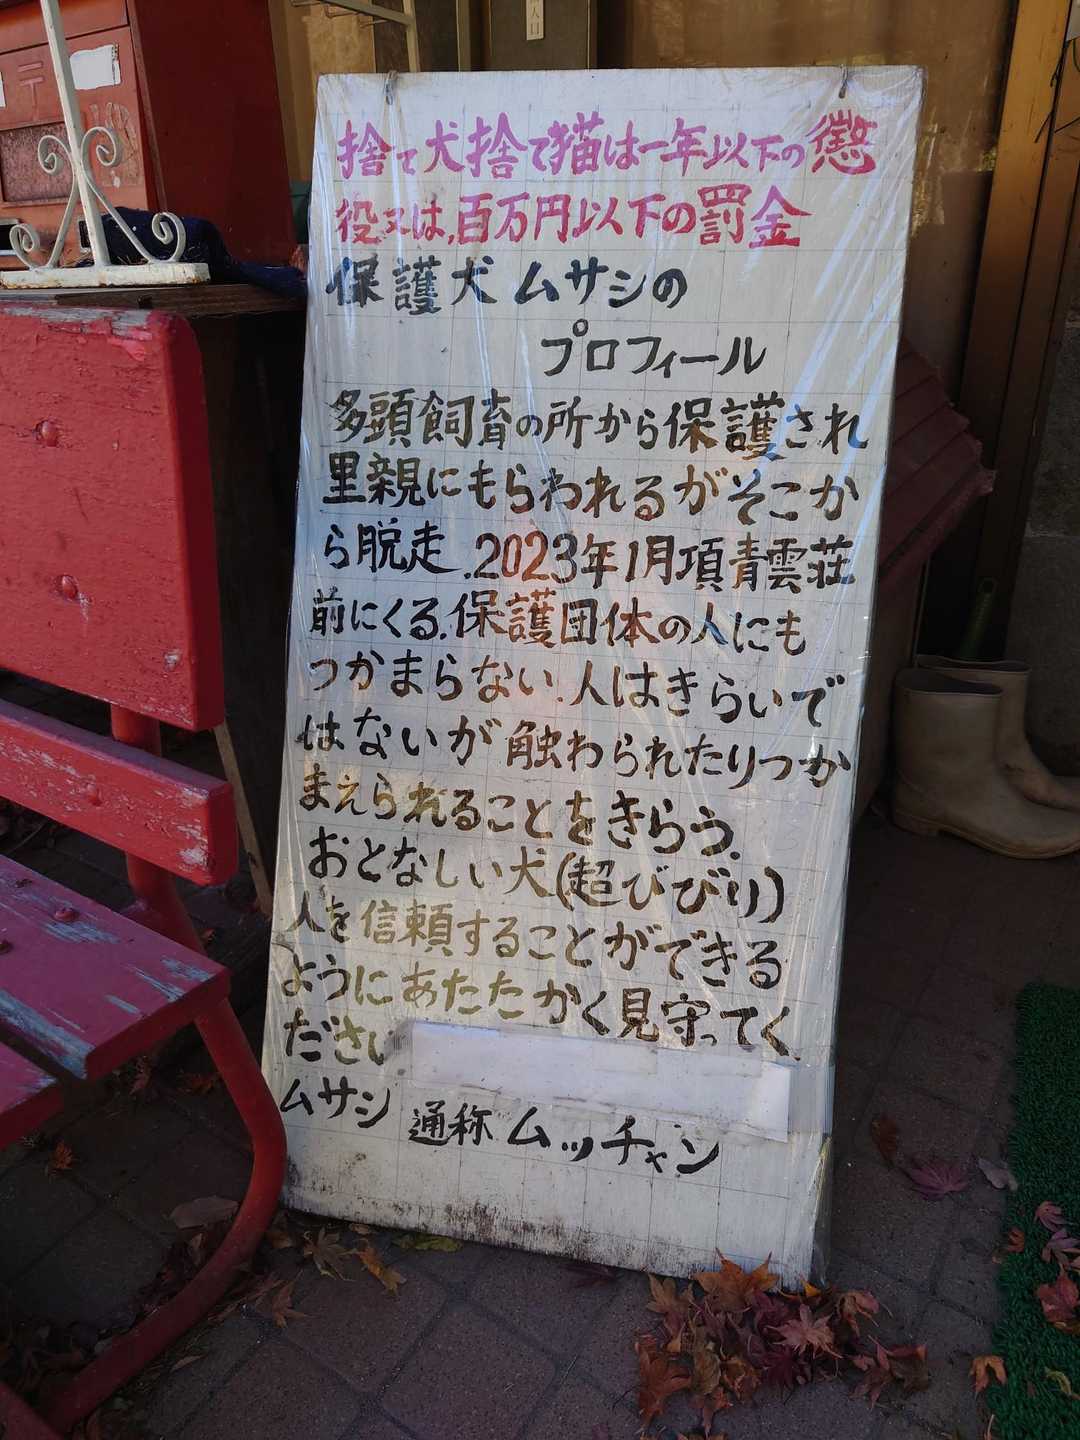 入口
〒
捨て犬捨て猫は一年以下の懲
役又は、百万円以下の罰金
保護犬 ムサシの
プロフィール
多頭飼育の所から保護され
里親にもらわれるがそこか
ら脱走.2023年1月項青雲荘
前にくる.保護団体の人にも
つかまらない.人はきらいで
はないが触わられたりつか
まえられることをきらう.
おとなしい犬(超びびり)
人を信頼することができる
ようにあたたかく見守ってく
ださい
ムサシ 通称 ムッチャン